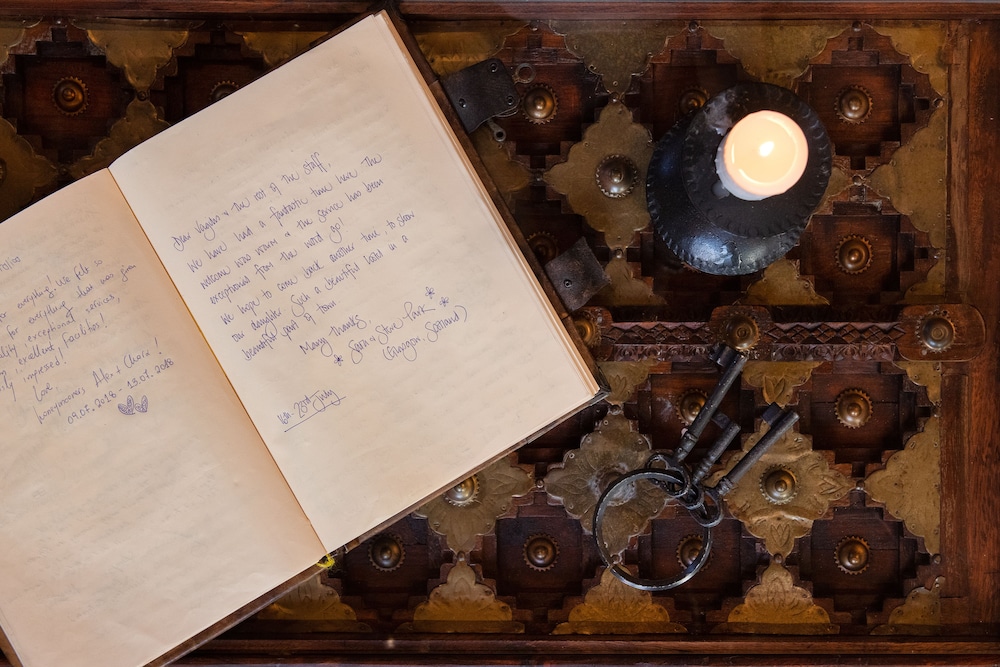 everything! We felt so
for everything that was from
exceptional services,
excellent, facilities!
impressed!
Love,
honeymooners, Alex + Chloe!
09.07.2018 - 13.07.2018
Dear Vaughn & the rest of the staff,
We have had a fantastic time here. The
welcome was warm & the service has been
exceptional from the word go!
We hope to come back another time, to show
our daughter such a beautiful hotel in a
beautiful part of town
Many thanks,
Sara & Steve Park
(Glasgow, Scotland)
- 23rd July